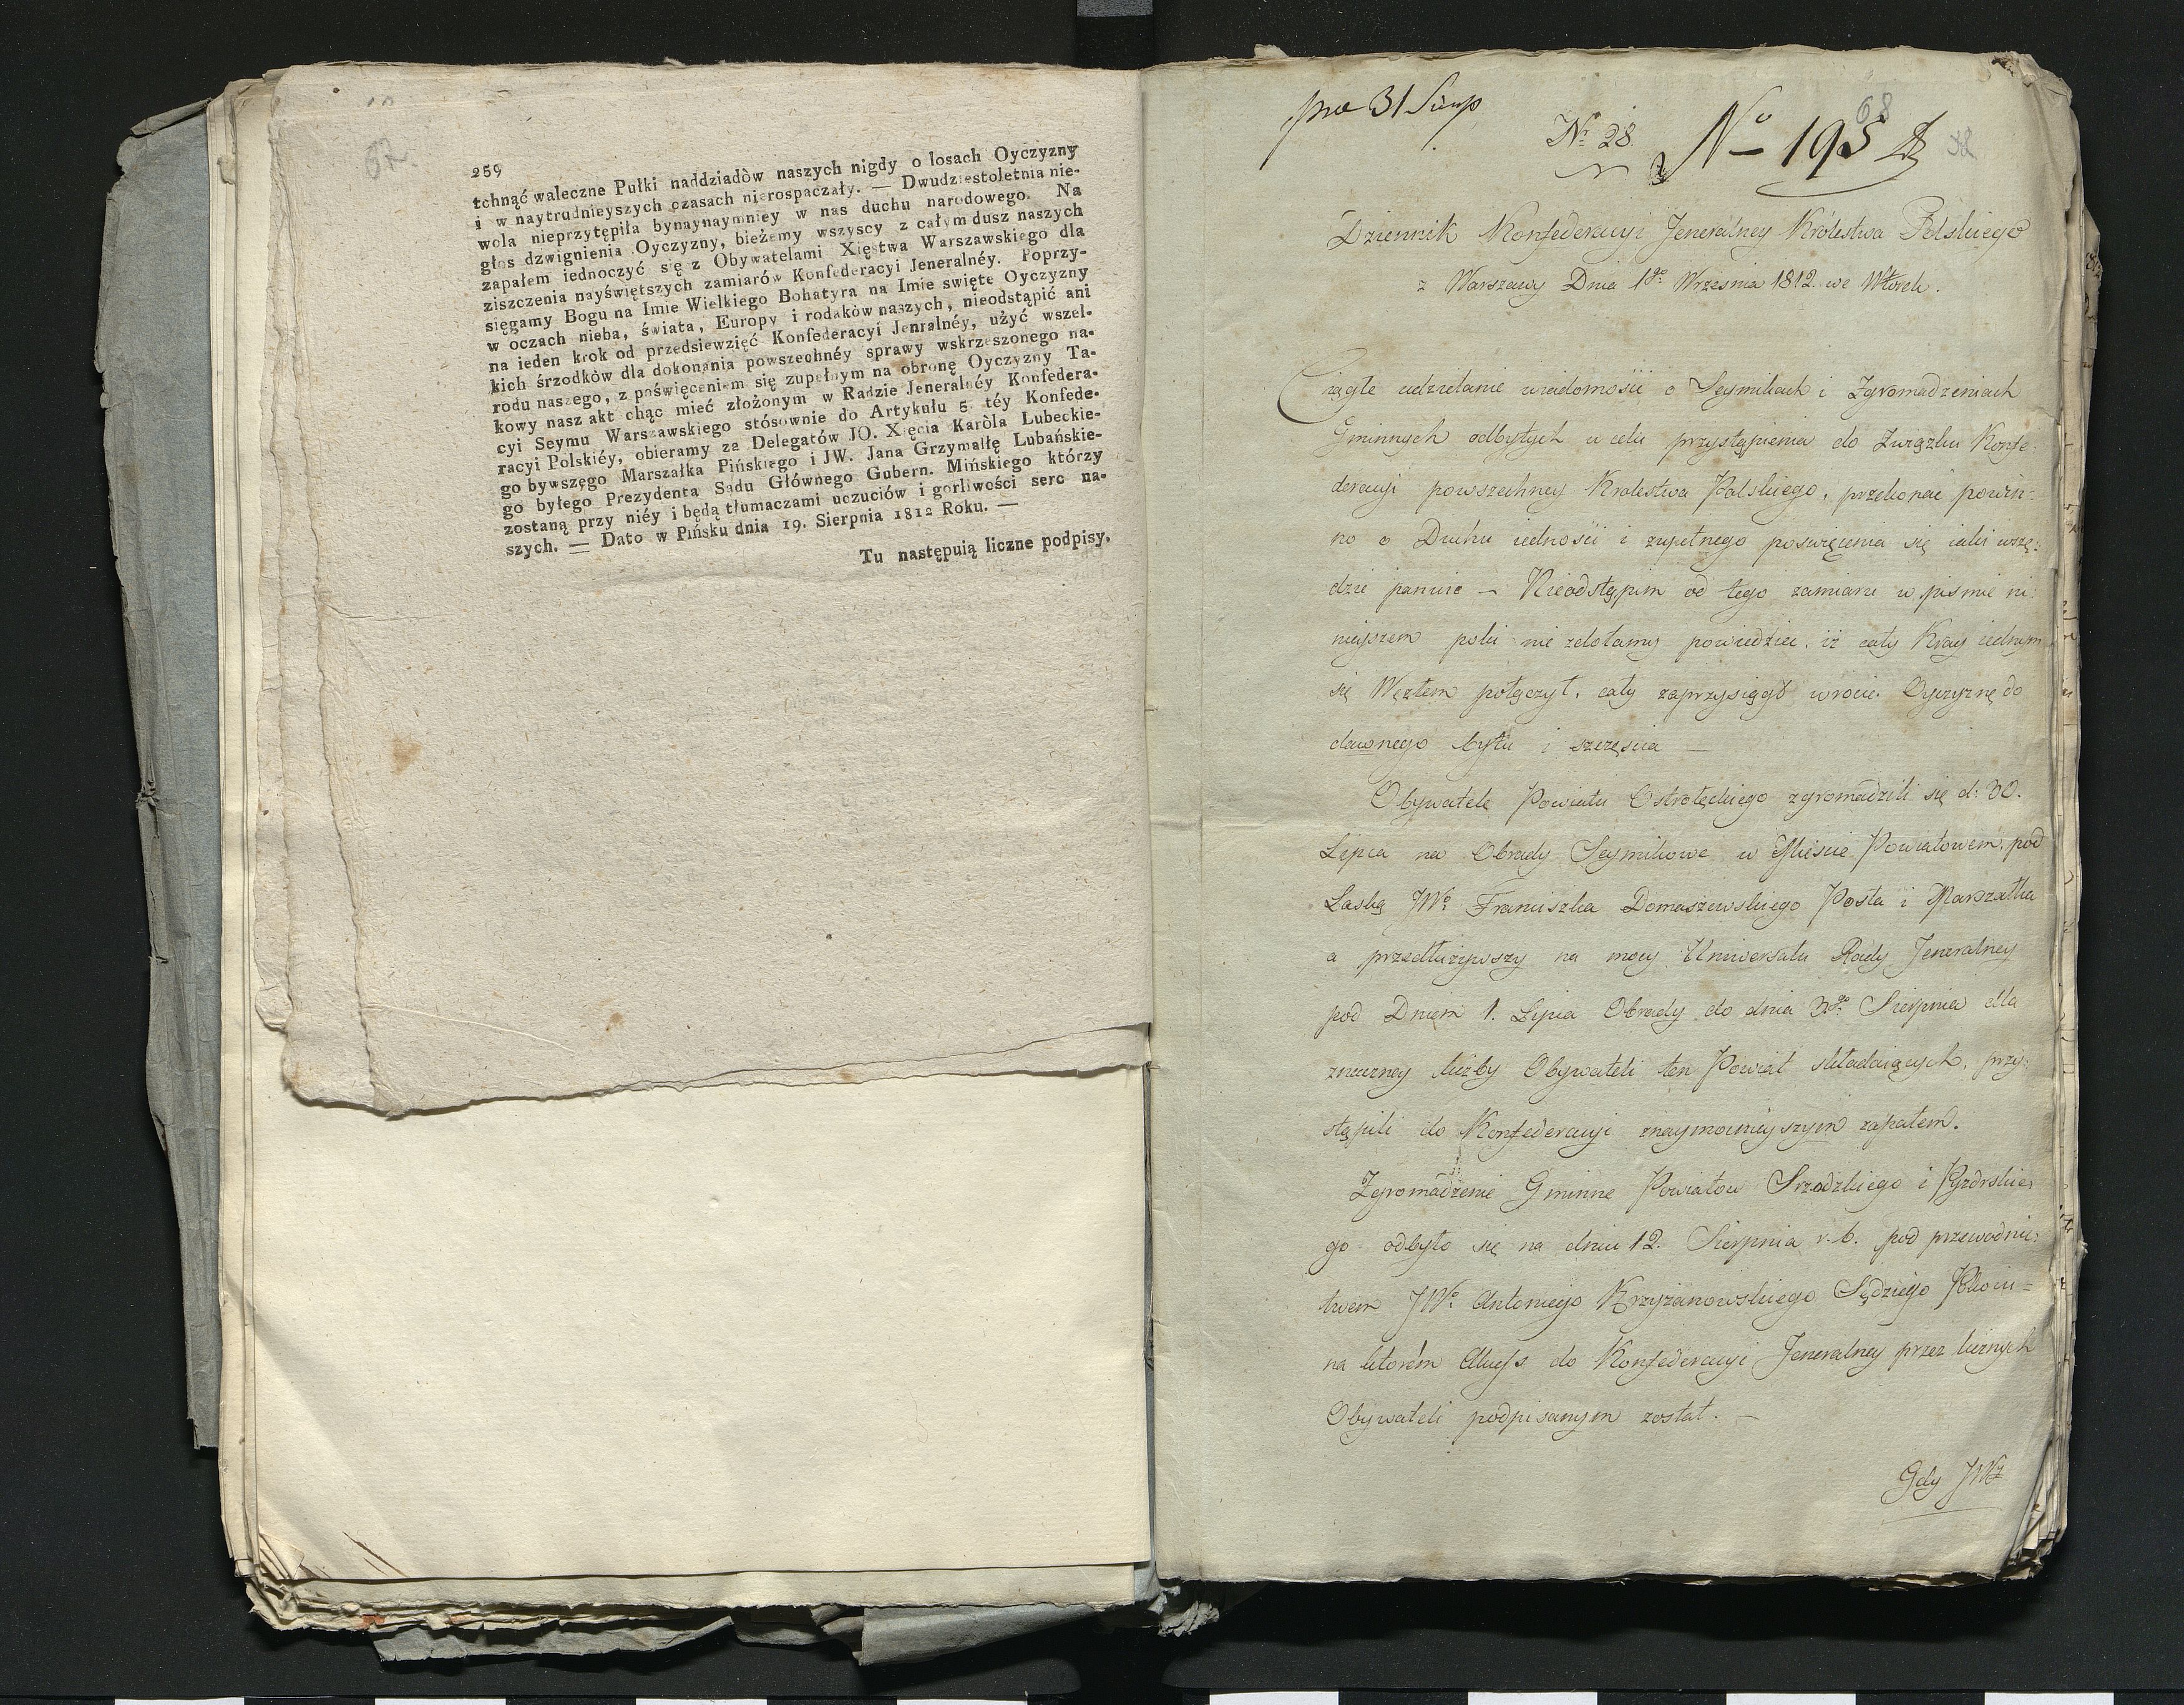 67.
259
tchnąć waleczne Pułki naddziadòw naszych nigdy o losach Oyczyzny
i w naytrudnieyszych czasach nierospaczały. — Dwudziestoletnia nie-
wola nieprzytępiła bynaynaymniey w nas duchu narodowego. Na
głos dzwignienia Oyczyzny, bieżemy wszyscy z całym dusz naszych
zapałem iednoczyć się z Obywatelami Xięstwa Warszawskiego dla
ziszczenia nayświętszych zamiarów Konfederacyi Jeneralnéy. Poprzy-
sięgamy Bogu na Imie Wielkiego Bohatyra na Imie swięte Oyczyzny
w oczach nieba, świata, Europy i rodaków naszych, nieodstąpić ani
na ieden krok od przedsiewzięć Konfederacyi Jenralnéy, użyć wszel-
kich śrzodków dla dokonania powszechnéy sprawy wskrzeszonego na-
rodu naszego, z poświęceniem się zupełnym na obronę Oyczyzny Ta-
kowy nasz akt chąc mieć złożonym w Radzie Jeneralnéy Konfedera-
cyi Seymu Warszawskiego stósownie do Artykułu 5. téy Konfede-
racyi Polskiéy, obieramy za Delegatów JO. Xięcia Karòla Lubeckie-
go bywszego Marszałka Pińskiego i JW. Jana Grzymałłę Lubańskie-
go byłego Prezydenta Sądu Głównego Gubern. Mińskiego którzy
zostaną przy niéy i będą tłumaczami uczuciów i gorliwości serc na-
szych. — Dato w Pińsku dnia 19. Sierpnia 1812 Roku. —
Tu następuią liczne podpisy.
31 Sierp
68
No 28.
No 195
Dziennik Konfederacyi Jeneralney Królestwa Polskiego
z Warszawy Dnia 1go Wrzesnia 1812. we Wtorek.
Ciągłe udzielanie wiadomości o Seymikach i Zgromadzeniach
Gminnych odbytych w celu przystąpienia do Związku Konfe:
deracyi powszechney Krolestwa Polskiego, przekonać powin:
no o Duchu iedności i zupełnego poswięcenia się iaki wszę:
dzie panuie — Nieodstąpim od tego zamiaru w pismie ni:
nieyszem poki nie zdołamy powiedziec, iż cały Kray iednym
się Węzłem połączył, cały zaprzysiągł wrocic Oyczyznę do
dawnego bytu i szczęscia —
Obywatele Powiatu Ostrołęckiego zgromadzili się d: 30.
Lipca na Obrady Seymikowe w Mieście Powiatowem, pod
Laską JWo Franciszka Domaszewskiego Posła i Marszałka
a przedłużywszy na mocy Uniwersału Rady Jeneralney
pod Dniem 1. Lipca Obrady do dnia 3go Sierpnia dla
znaczney liczby Obywateli ten Powiat składaiących, przy:
stąpili do Konfederacyi znaymocnieyszym zapałem.
Zgromadzenie Gminne Powiatow Srzodzkiego i Pyzdrskie:
go odbyło się na dniu 12. Sierpnia r. b. pod przewodnic:
twem JWo Antoniego Krzyżanowskiego Sędziego Pokoiu =
na ktorém Akcess do Konfederacyi Jeneralney przez licznych
Obywateli podpisanym został. —
Gdy JW